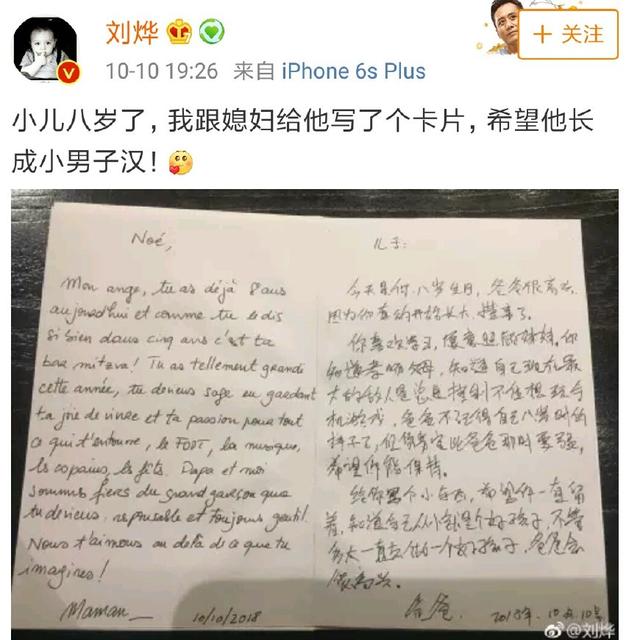 刘烨
+ 关注
10-10 19:26 来自 iPhone 6s Plus
小儿八岁了，我跟媳妇给他写了个卡片，希望他长
成小男子汉！
Noé,
Mon ange, tu as déjà 8 ans
aujourd'hui et comme tu le dis
si bien dans cinq ans c'est ta
bar mitzva! Tu as tellement grandi
cette année, tu deviens sage en gardant
ta joie de vivre et ta passion pour tout
ce qui t'entoure, le FOOT, la musique,
les copains, les fêts. Papa et moi
sommes fiers du grand garçon que
tu deviens, responsable et toujours gentil.
Nous t'aimons au delà de ce que tu
imagines!
Maman
10/10/2018
儿子:
今天是你八岁生日，爸爸很高兴，
因为你真的开始长大，懂事了。
你喜欢学习，愿意照顾妹妹，你
知道孝顺 知道自己现在最
大的敌人是总是控制不住想玩手
机游戏，爸爸不记得自己八岁时的
样子了，但你肯定比爸爸那时要强，
希望你能保持。
给你写个小东西，希望你一直留
着，知道自己从小就是个好孩子，不管
多大一直去做一个好孩子，爸爸会
很高兴。
爸爸
2018年10月10号
@刘烨